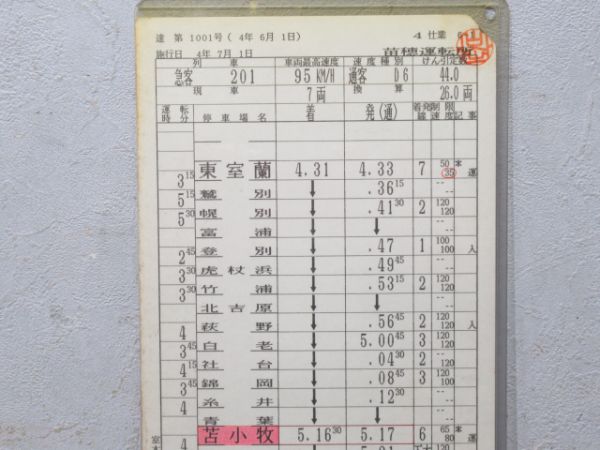 達 第 1001号( 4年 6月 1日) 4 仕業
施行日 4年 7月 1日 苗穂運転所
列 車 車両最高速度 速度種別 けん引定数
急客 201 95 KM/H 通客 D6 44.0
現 車 7両 換 算 26.0両
運転時分 停車場名 着 発(通) 着発線 制限速度 記事
東室蘭 4.31 4.33 7 50 35 本 運
3 15 鷲別 ↓ .36 15 -- --
5 15 幌別 ↓ .41 30 2 120 120
5 30 富浦 ↓ ↓ -- --
登別 ↓ .47 1 100 100 入
2 45 虎杖浜 ↓ .49 45 -- --
3 30 竹浦 ↓ .53 15 2 120 120
3 30 北吉原 ↓ ↓ -- --
萩野 ↓ .56 45 2 120 120 入
4 白老 ↓ 5.00 45 3 120 120
3 45 社台 ↓ .04 30 2 120
4 15 錦岡 ↓ .08 45 3 120 100
3 45 糸井 ↓ .12 30 -- --
4 青葉 ↓ ↓ -- --
苫小牧 5.16 30 5.17 6 65 80 本 運
室 4